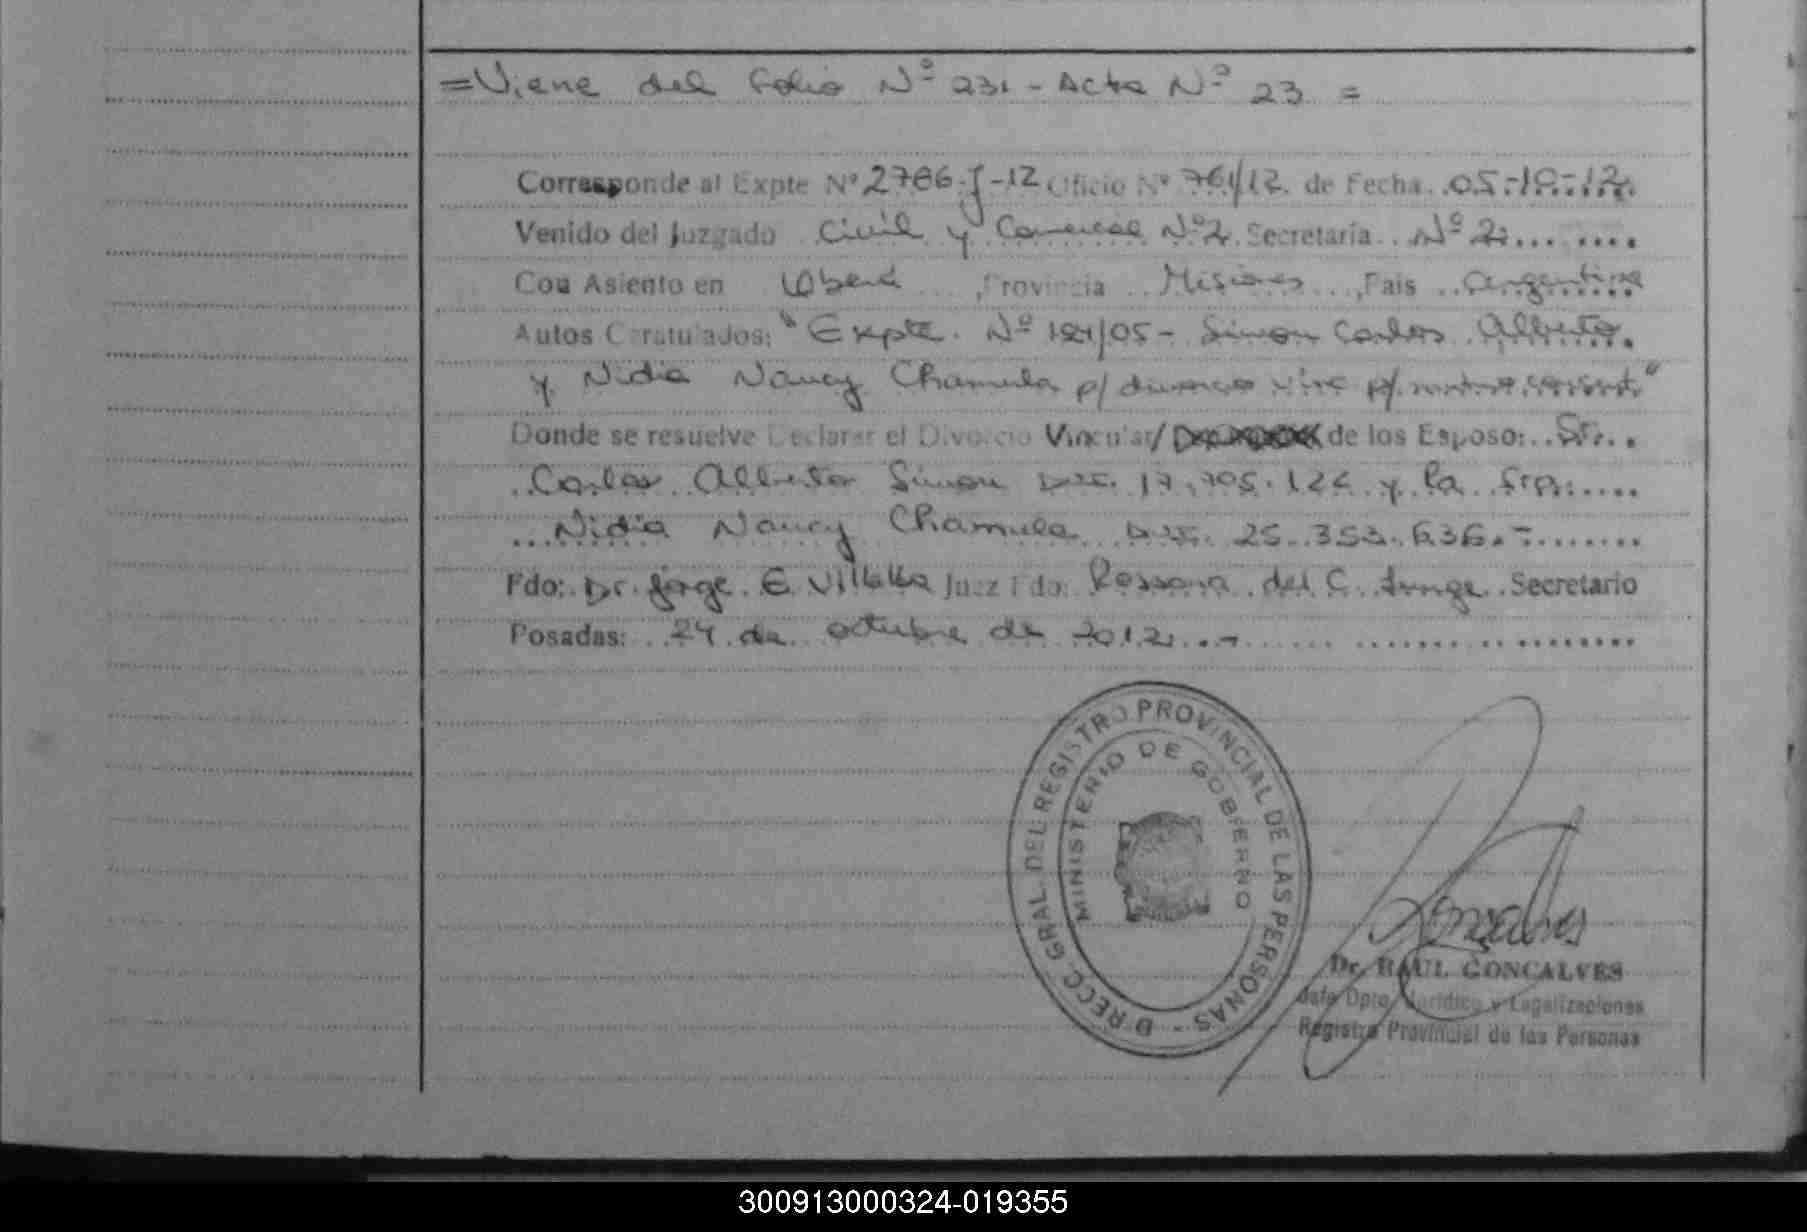 =Viene del Folio Nº 231 - Acta Nº 23 =
Corresponde al Expte Nº 2786-J-12 Oficio Nº 761/12 de Fecha 05-10-12
Venido del Juzgado Civil y Comercial Nº2 Secretaria Nº 2
Con Asiento en Oberá, Provincia Misiones, Pais Argentina
Autos Caratulados: "Expte. Nº 181/05 - Simon Carlos Alberto
y Nidia Nancy Chamula p/ divorcio vinc p/ mutuo consent."
Donde se resuelve Declarar el Divorcio Vincular/ de los Esposo: Sr.
Carlos Alberto Simon DNI. 17.705.126 y la Sra.
Nidia Nancy Chamula DNI. 25.353.636.-
Fdo: Dr. Jorge E Villalba Juez Fdo: Rossana del C. Secretario
Posadas: 24 de octubre de 2012.-
DIRECC. GRAL. DEL REGISTRO PROVINCIAL DE LAS PERSONAS -
MINISTERIO DE GOBIERNO
Goncalves
Dr. RAUL GONCALVES
Jefe Dpto. Jurídico y Legalizaciones
Registro Provincial de las Personas
300913000324-019355